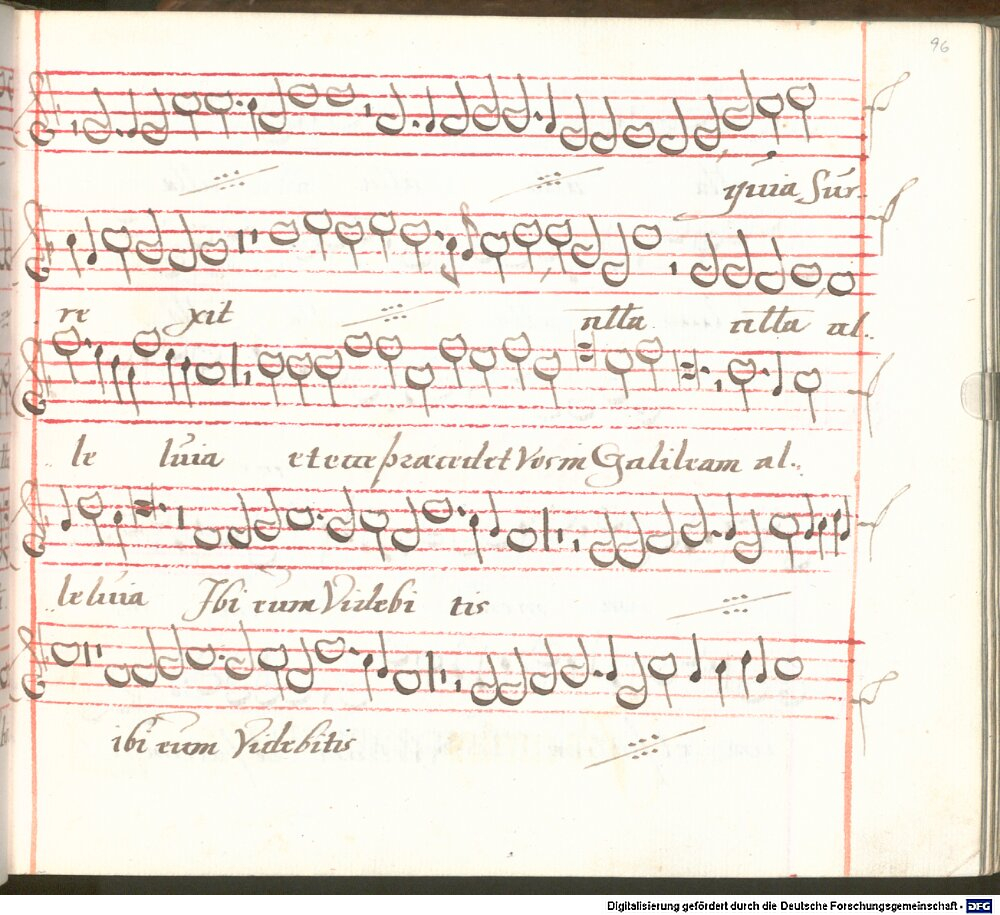 96
quia Sur-
re xit nlla nlla al-
le luia et ecce præcedet Vos in Galileam al-
leluia Ibi eum Videbi tis
ibi eum Videbitis
Digitalisierung gefördert durch die Deutsche Forschungsgemeinschaft - DFG